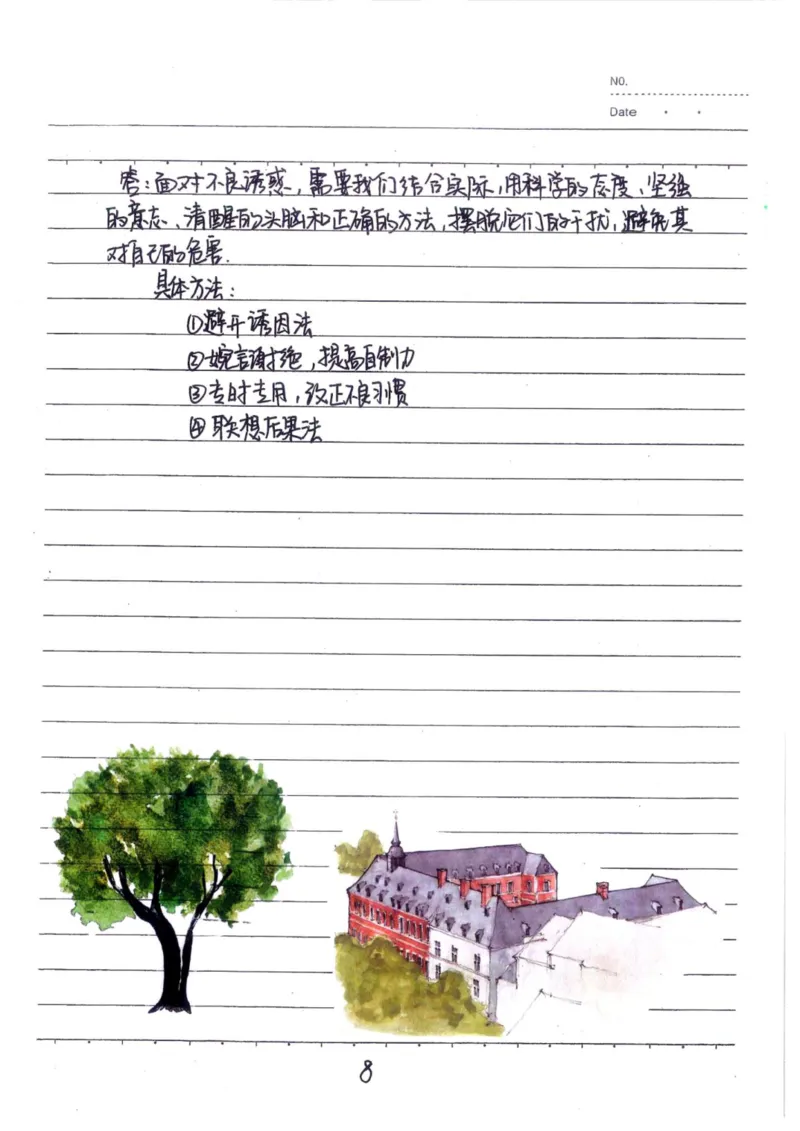 NO.
Date
答:面对不良诱惑,需要我们结合实际,用科学的态度、坚强
的意志、清醒的头脑和正确的方法,摆脱它们的干扰,避免其
对自己的危害.
具体方法:
①避开诱因法
②婉言谢拒绝,提高自制力
③专时专用,改正不良习惯
④联想后果法
8